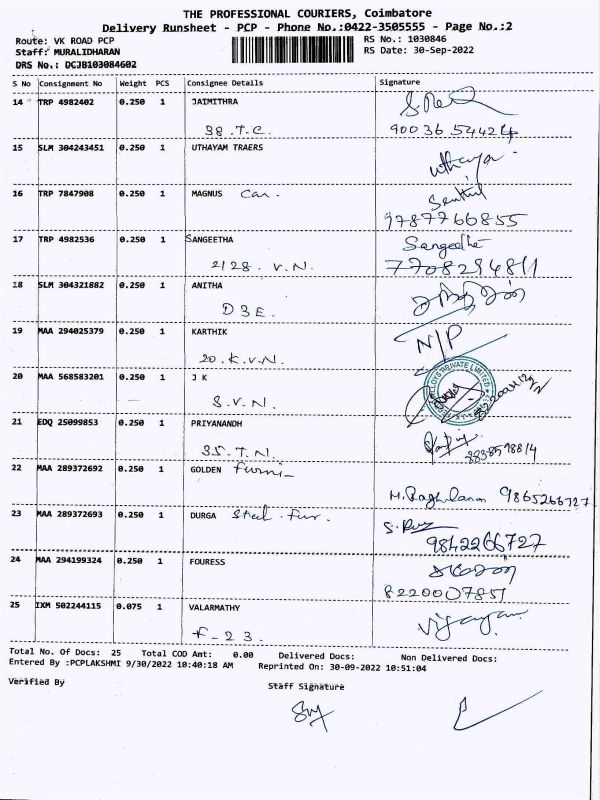 THE PROFESSIONAL COURIERS, Coimbatore
Delivery Runsheet - PCP - Phone No.:0422-3505555 - Page No.:2
Route: VK ROAD PCP RS No.: 1030846
Staff: MURALIDHARAN RS Date: 30-Sep-2022
DRS No.: DCJB103084602
S No Consignment No Weight PCS Consignee Details Signature
14 TRP 4982402 0.250 1 JAIMITHRA
38.T.C. 90036 54424
15 SLM 304243451 0.250 1 UTHAYAM TRAERS
uthaya
16 TRP 7847908 0.250 1 MAGNUS Car. Senthil
9787766855
17 TRP 4982536 0.250 1 SANGEETHA Sangeetha
2128. V.N. 7708294811
18 SLM 304321882 0.250 1 ANITHA
D3E.
19 MAA 294025379 0.250 1 KARTHIK N/P
20.K.V.N.
20 MAA 568583201 0.250 1 J K
S.V.N.
LLOYS PRIVATE LIMITED
21 EDQ 25099853 0.250 1 PRIYANANDH
35.T.N.
22 MAA 289372692 0.250 1 GOLDEN Furni
9865266727
23 MAA 289372693 0.250 1 DURGA Steel. Fur.
9842266727
24 MAA 294199324 0.250 1 FOURESS
8220007851
25 IXM 502244115 0.075 1 VALARMATHY
F-23.
Total No. Of Docs: 25 Total COD Amt: 0.00 Delivered Docs: Non Delivered Docs:
Entered By :PCPLAKSHMI 9/30/2022 10:40:18 AM Reprinted On: 30-09-2022 10:51:04
Verified By Staff Signature